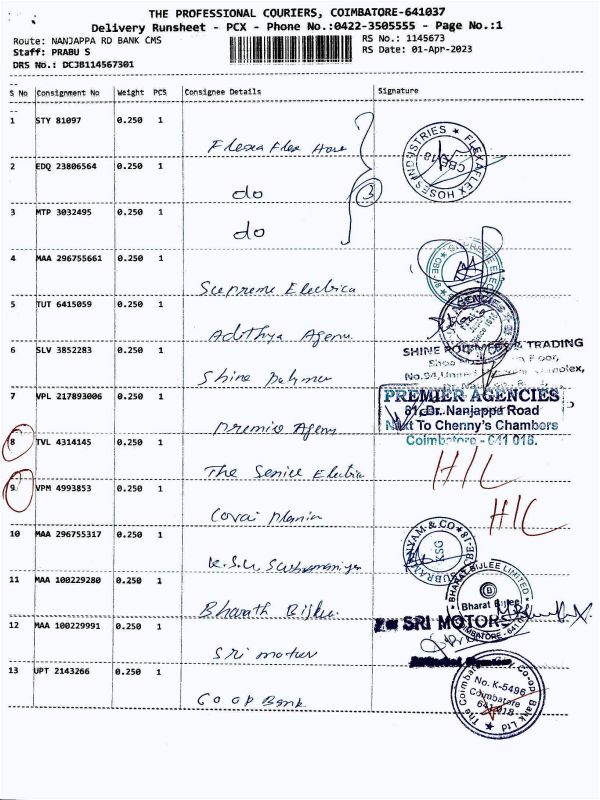 THE PROFESSIONAL COURIERS, COIMBATORE-641037
Delivery Runsheet - PCX - Phone No.:0422-3505555 - Page No.:1
Route: NANJAPPA RD BANK CMS
RS No.: 1145673
Staff: PRABU S
RS Date: 01-Apr-2023
DRS No.: DCJB114567301
S No Consignment No Weight PCS Consignee Details Signature
1 STY 81097 0.250 1 Flexa Flex Hose
FLEXAFLEX HOSES INDUSTRIES CBE-18
2 EDQ 23806564 0.250 1 do
3
3 MTP 3032495 0.250 1 do
4 MAA 296755661 0.250 1 Supreme Electrica
SUPREME ELE CBE-18
5 TUT 6415059 0.250 1 Adithya Agenc
AGENCIES
6 SLV 3852283 0.250 1 Shine polymer
SHINE POLYMERS & TRADING
Floor,
7 VPL 217893006 0.250 1 premier Agency
PREMIER AGENCIES
81, Dr. Nanjappa Road
Next To Chenny's Chambers
Coimbatore - 641 018.
8 TVL 4314145 0.250 1 The Senice Electric
H/C
9 VPM 4993853 0.250 1 Covai
H/C
10 MAA 296755317 0.250 1 K.S.G Subramaniyam
SUBRAMANIYAM & CO KSG
11 MAA 100229280 0.250 1 Bharath Bijlee
BHARAT BIJLEE LIMITED
B
Bharat Bijlee
COIMBATORE - 641
12 MAA 100229991 0.250 1 Sri motors
For SRI MOTORS
13 UPT 2143266 0.250 1 Co op Bank
The Coimbatore Co-op Bank Ltd
No. K-5496
Coimbatore
641 018.